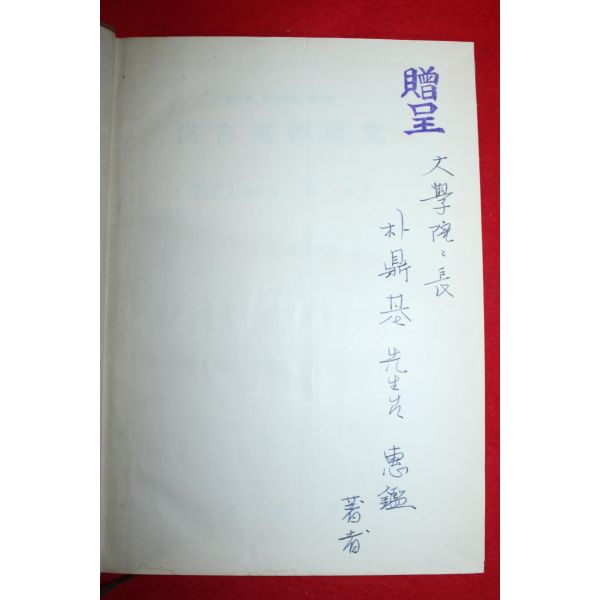 贈呈
文學院々長
朴鼎基 先生님 惠鑑
著者